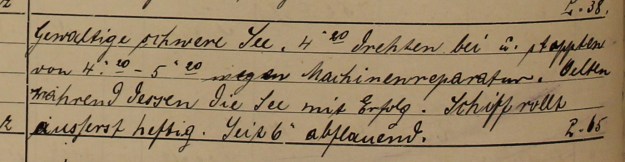 2.38.
Gewaltige schwere See. 4 20 drehten bei u. stoppten
von 4.20 - 5 20 wegen Machinenreparatur. Oelten
während dessen die See mit Erfolg. Schiff rollt
äusserst heftig. Seit 6 abflauend. 2.65